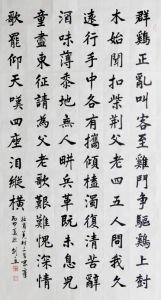 群鷄正亂叫客至鷄鬥爭驅鷄上樹
木始聞扣柴荊父老四五人問我久
遠行手中各有攜傾榼濁復清苦辭
酒味薄黍地無人耕兵革既未息兒
童盡東征請為父老歌艱難愧深情
歌罷仰天嘆四座淚縱橫